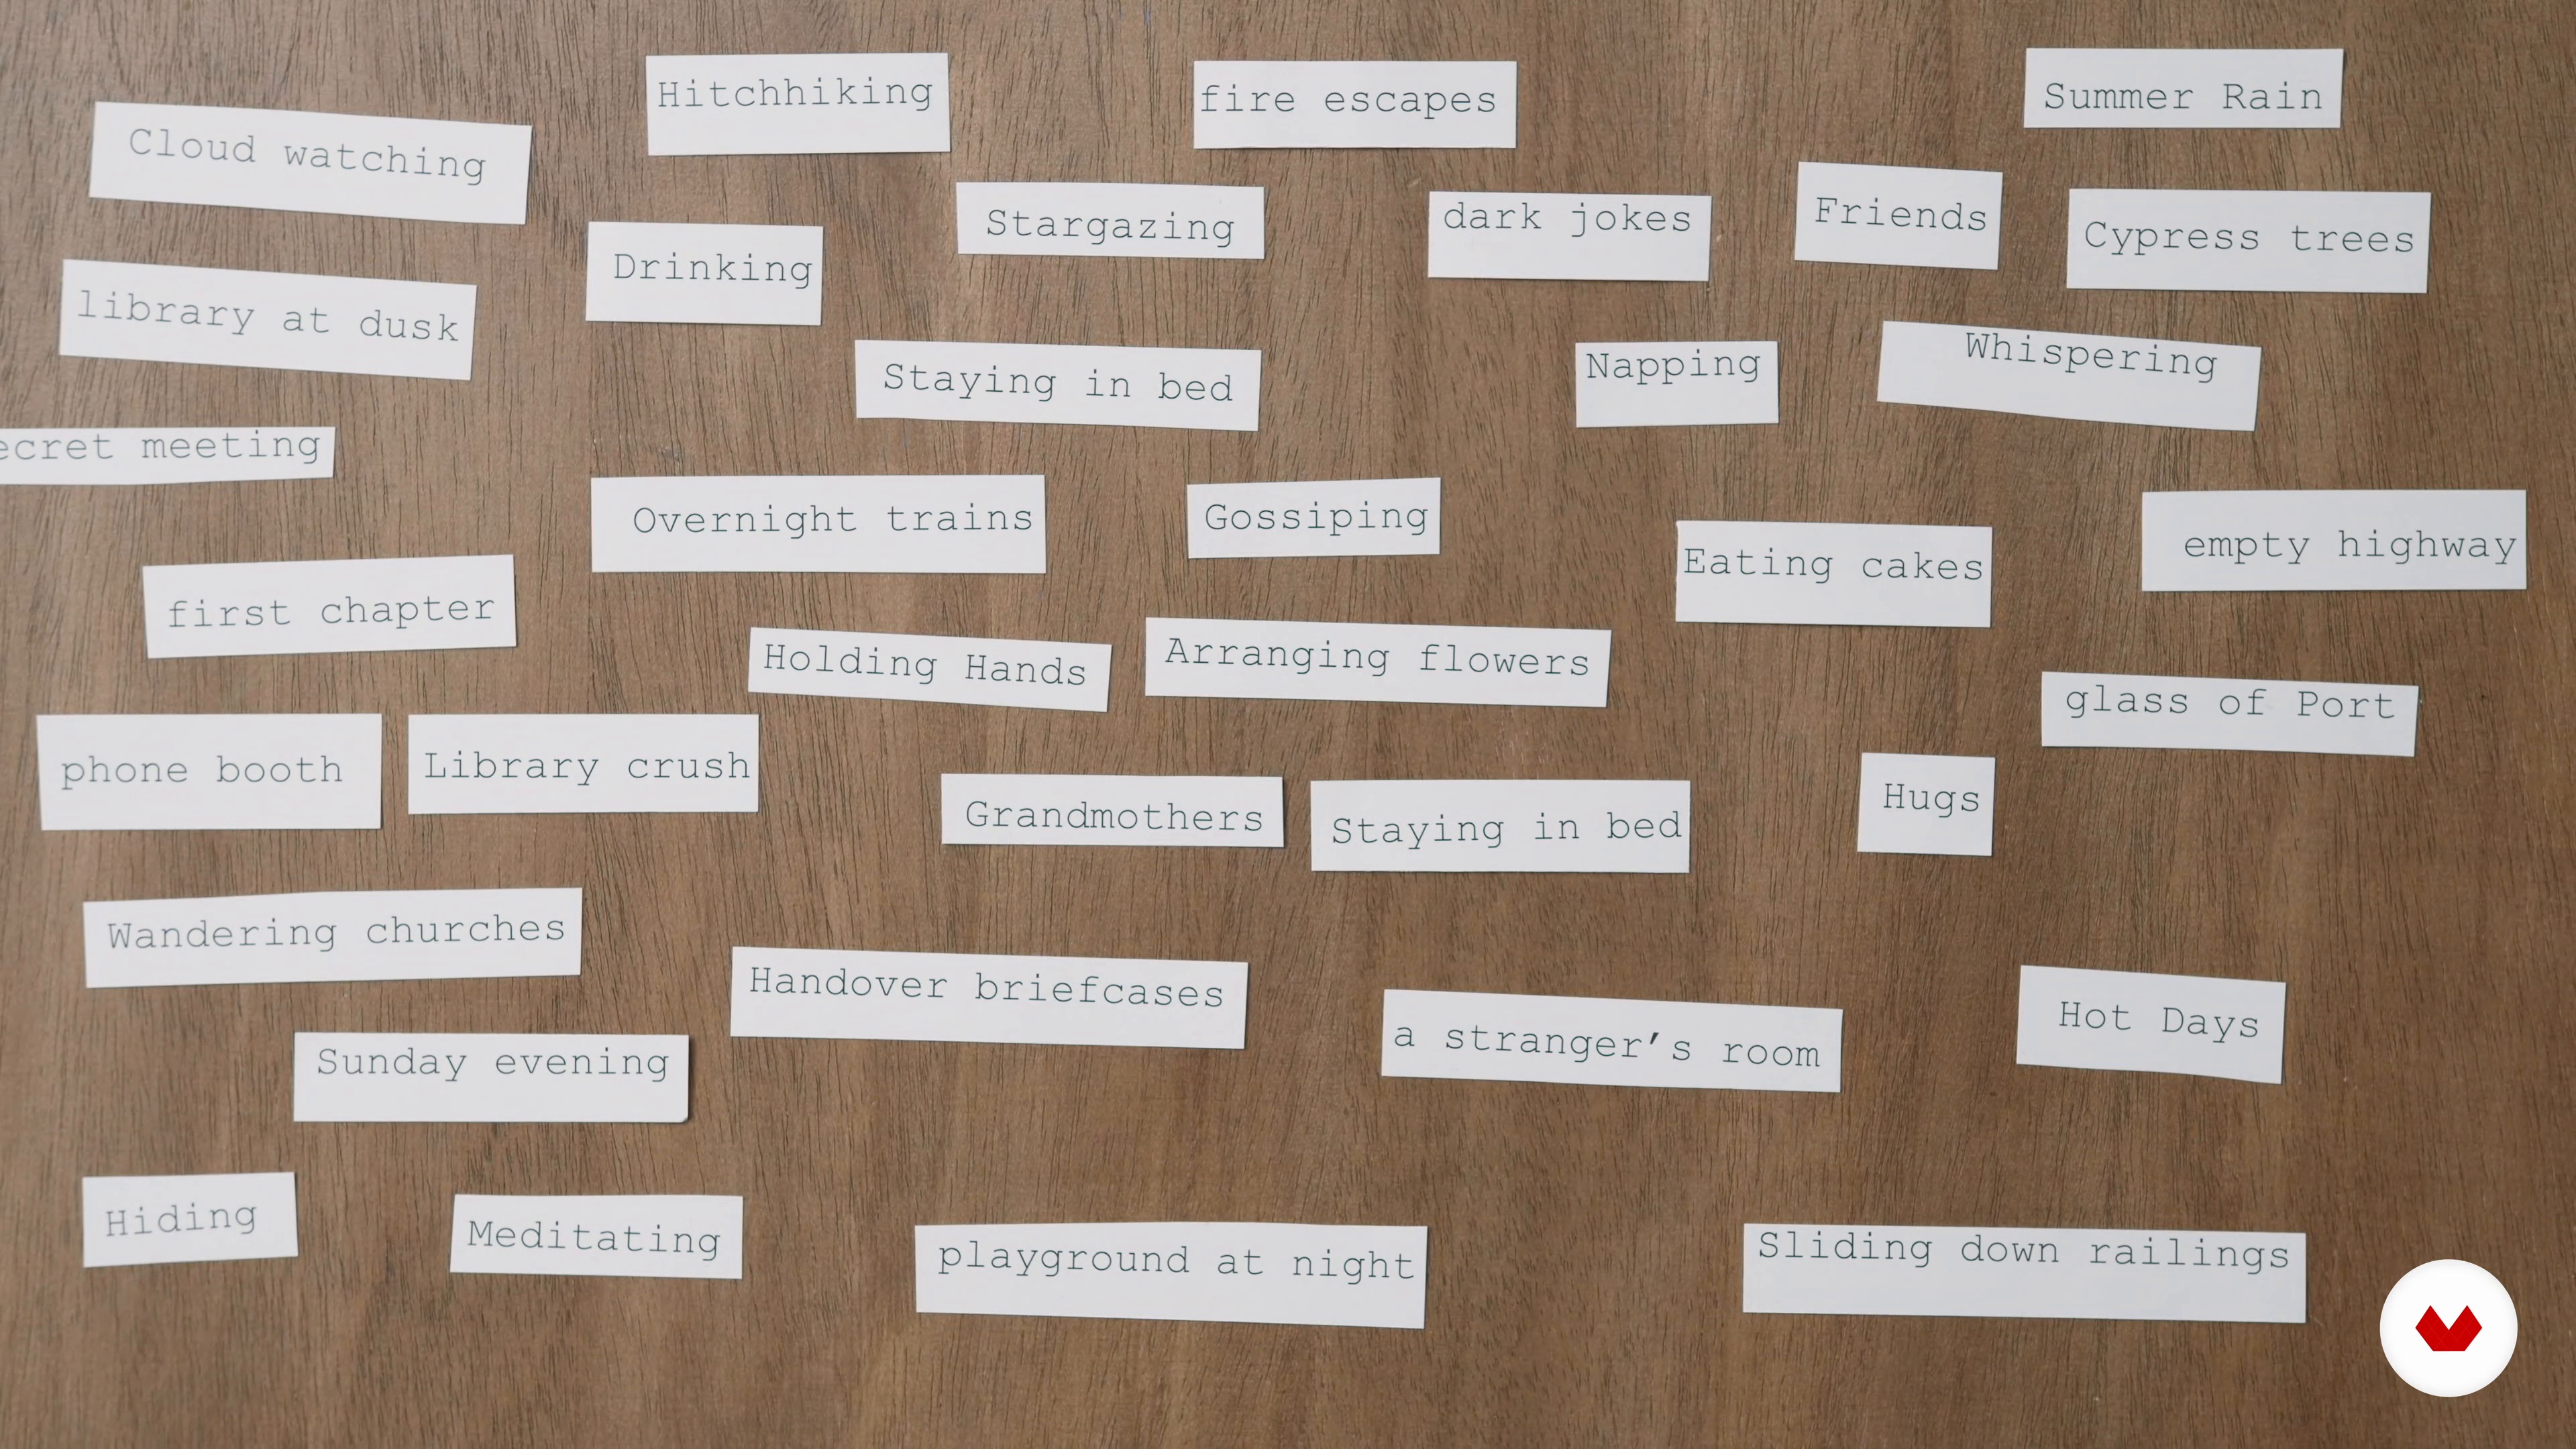 Hitchhiking
fire escapes
Summer Rain
Cloud watching
Stargazing
dark jokes
Friends
Cypress trees
Drinking
library at dusk
Staying in bed
Napping
Whispering
ecret meeting
Overnight trains
Gossiping
Eating cakes
empty highway
first chapter
Holding Hands
Arranging flowers
glass of Port
phone booth
Library crush
Grandmothers
Staying in bed
Hugs
Wandering churches
Handover briefcases
a stranger’s room
Hot Days
Sunday evening
Hiding
Meditating
playground at night
Sliding down railings